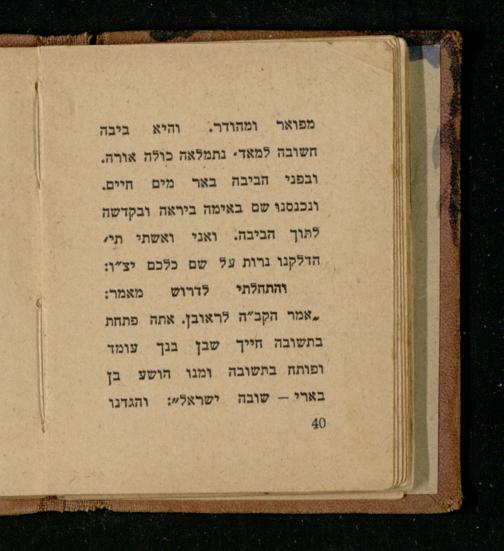 מפואר ומהודר. והיא ביבה
חשובה למאד. נתמלאה כולה אורה.
ובפני הביבה באר מים חיים.
ונכנסנו שם באימה ביראה ובקדשה
לתוך הביבה. ואני ואשתי תי׳
הדלקנו נרות על שם כלכם יצ״ו:
והתחלתי לדרוש מאמר:
„אמר הקב״ה לראובן. אתה פתחת
בתשובה חייך שבן בנך עומד
ופותח בתשובה ומנו הושע בן
בארי – שובה ישראל״: והגדנו
40